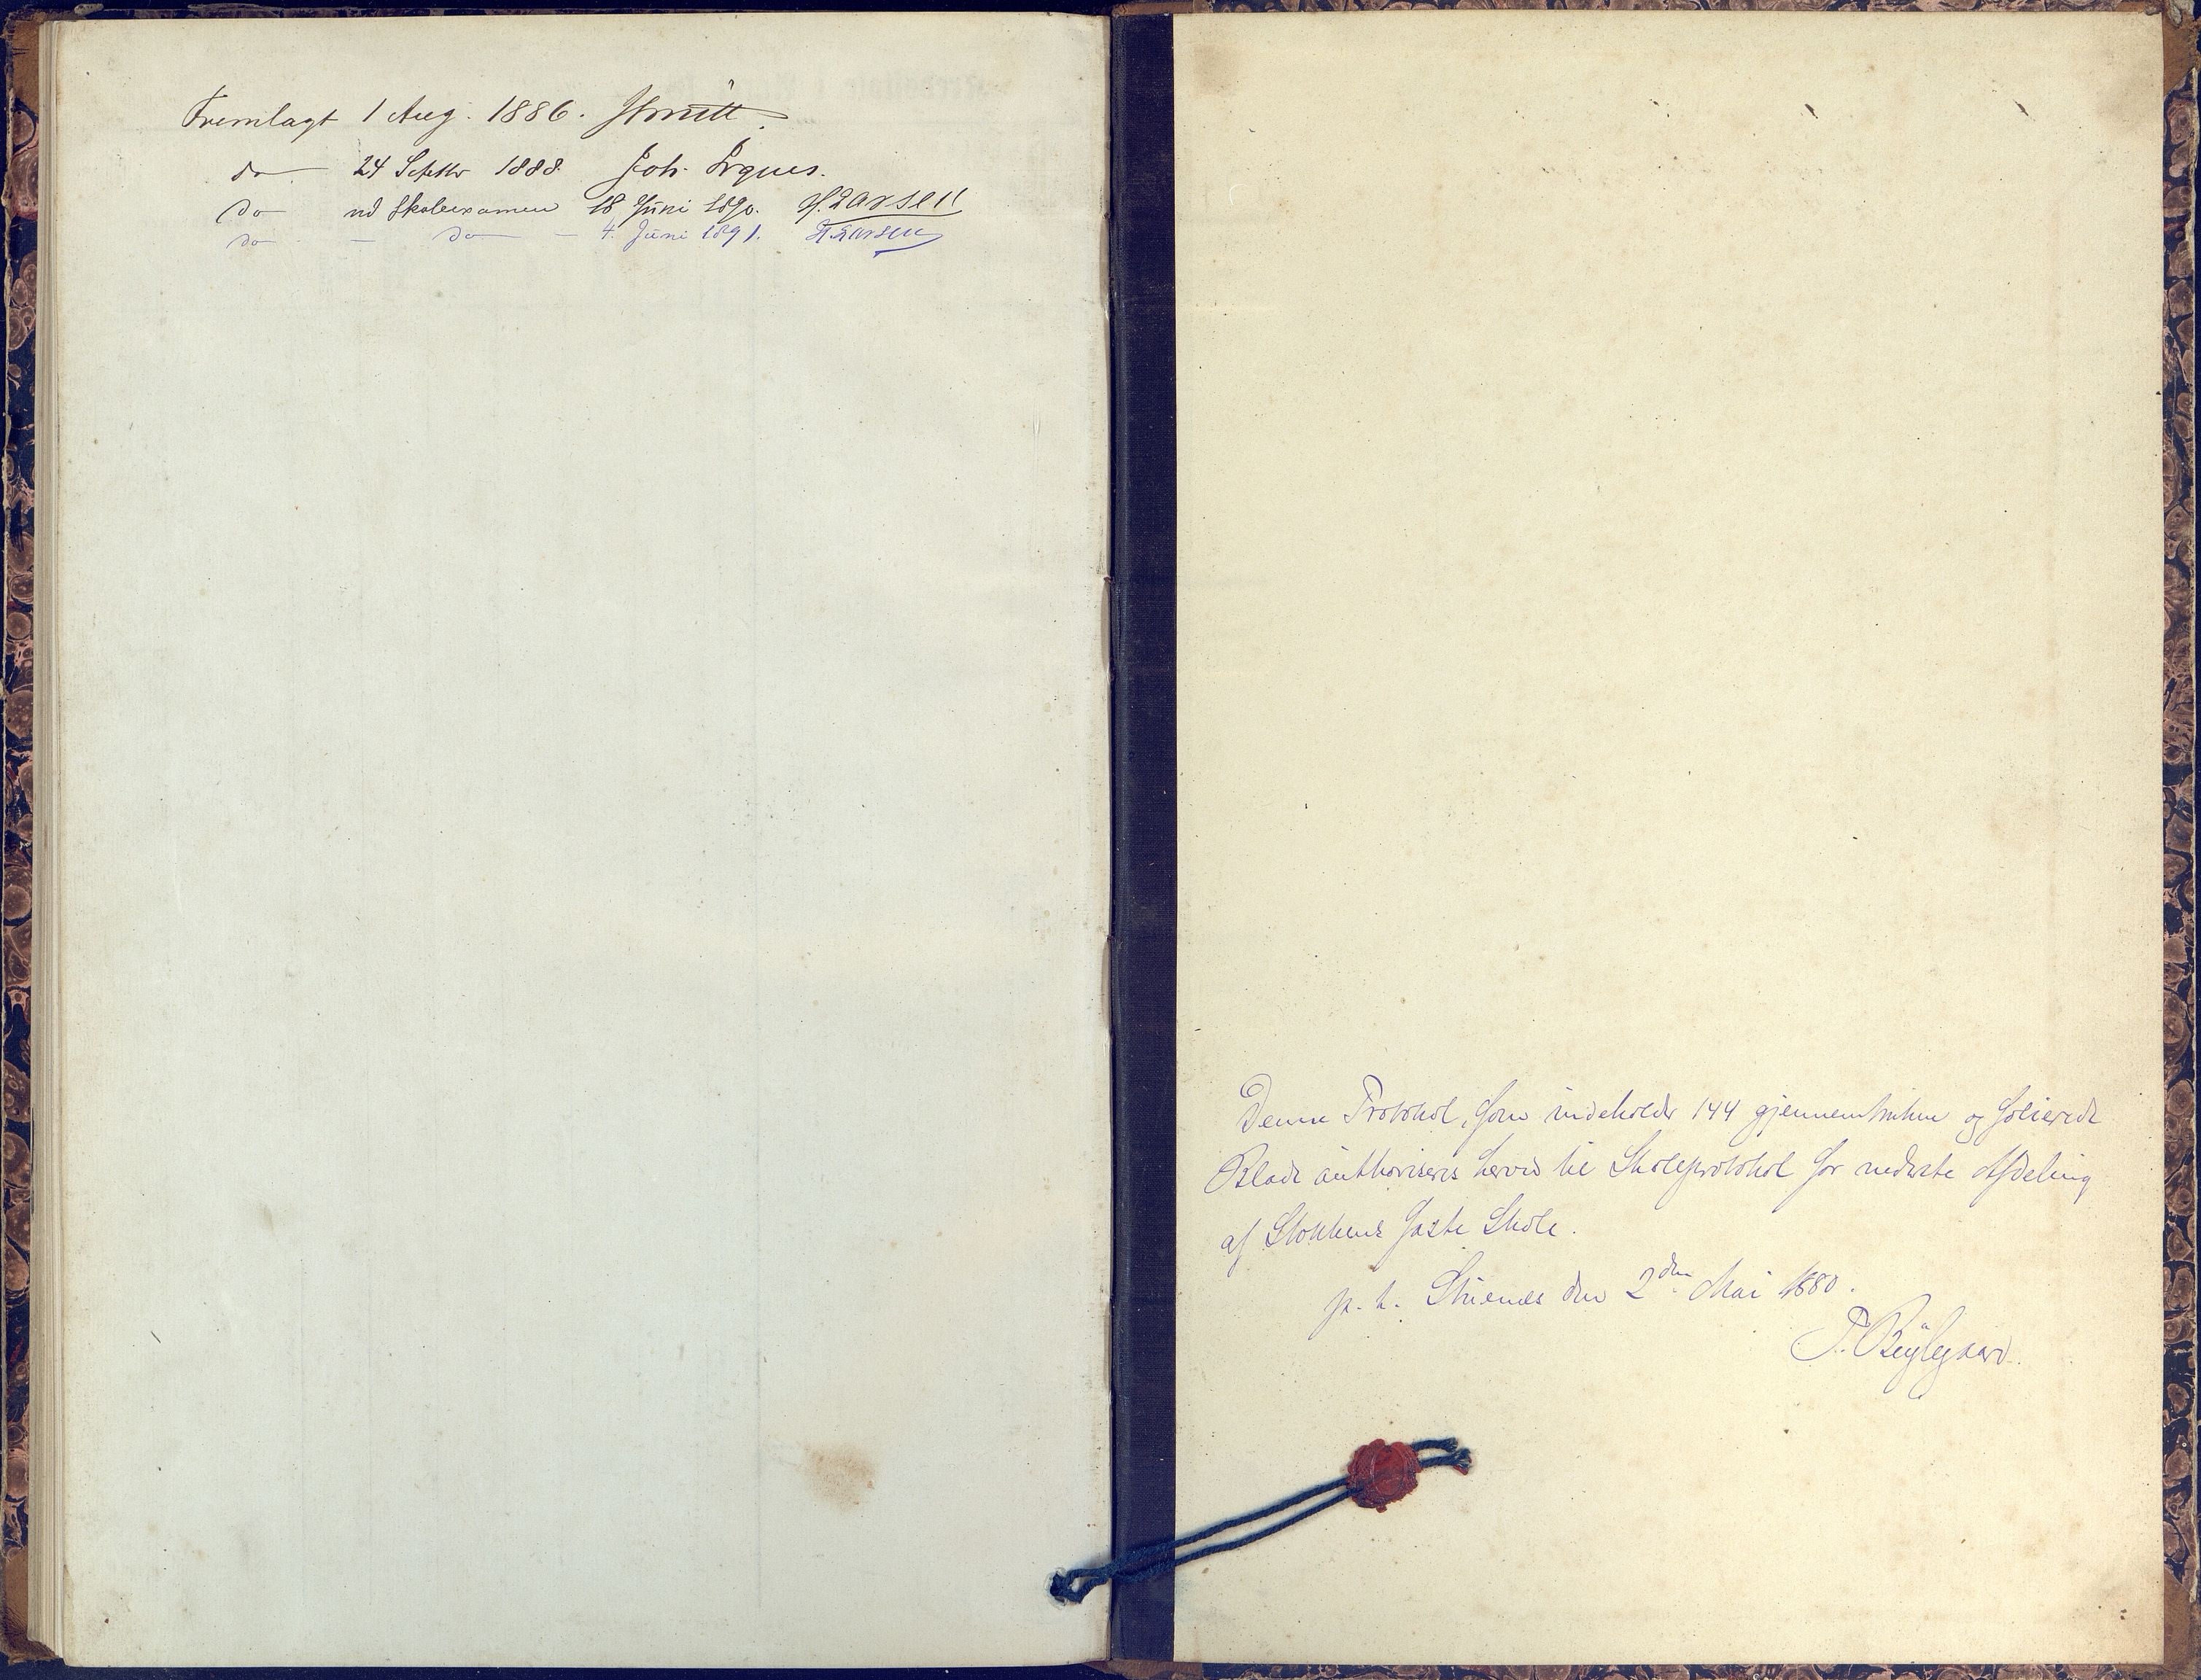 Fremlagt 1 Aug. 1886.
do 24 Septbr 1888. Joh.
do ved Skoleexamen 18 Juni 1890. H. Larsen
do - do - 4. Juni 1891. H. Larsen
Denne Protokol, som indeholder 144 gjennemtrukne og folierede
Blade authoriseres herved til Skoleprotokol for nederste Afdeling
af Stokkens faste Skole.
p. t. Strænæs den 2den Mai 1880.